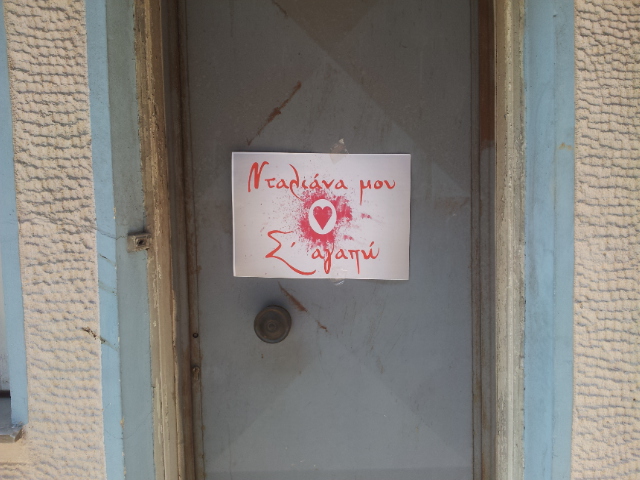 Νταλιάνα μου
Σ' αγαπώ